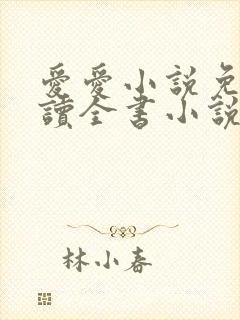 愛愛小說免
讀全書小說
林小春